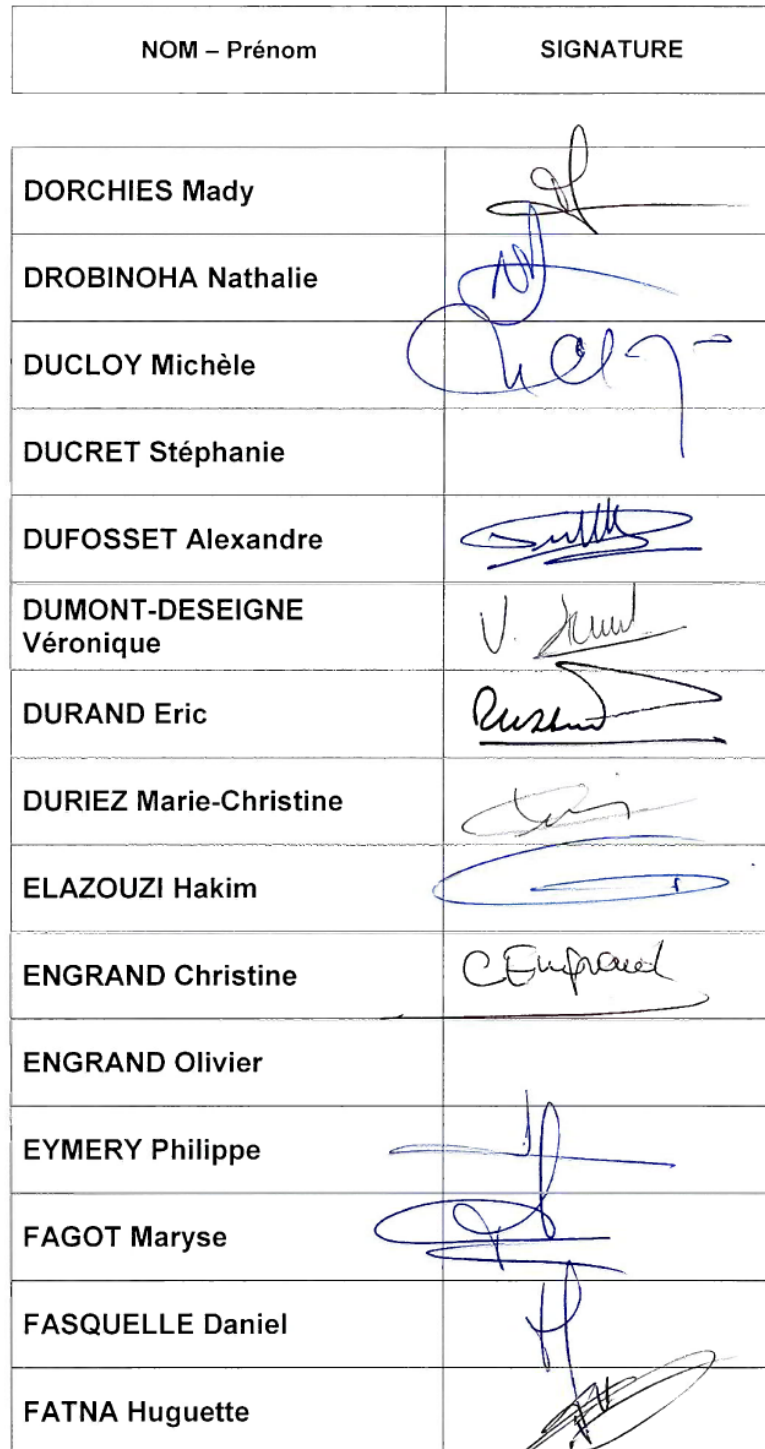 NOM – Prénom SIGNATURE
DORCHIES Mady
DROBINOHA Nathalie
DUCLOY Michèle
DUCRET Stéphanie
DUFOSSET Alexandre
DUMONT-DESEIGNE
Véronique V.
DURAND Eric
DURIEZ Marie-Christine
ELAZOUZI Hakim
ENGRAND Christine CEngrand
ENGRAND Olivier
EYMERY Philippe
FAGOT Maryse
FASQUELLE Daniel
FATNA Huguette